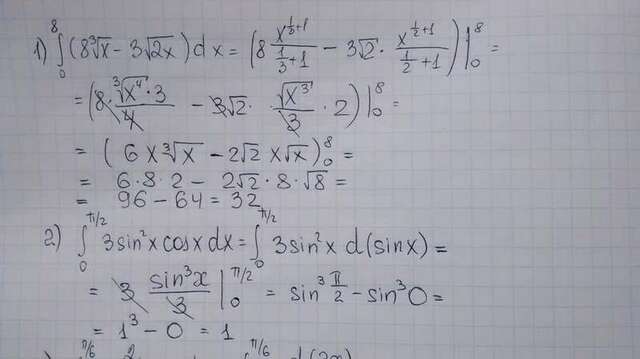 1) ∫₀⁸ (8∛x − 3√2x) dx = (8 x^(1/3+1) / (1/3+1) − 3√2 · x^(1/2+1) / (1/2+1)) |₀⁸ =
= (8 · ∛x⁴ · 3 / 4 − 3√2 · √x³ / 3 · 2) |₀⁸ =
= (6x∛x − 2√2 x√x)₀⁸ =
= 6·8·2 − 2√2 · 8 · √8 =
= 96 − 64 = 32
2) ∫₀^(π/2) 3sin²x cosx dx = ∫₀^(π/2) 3sin²x d(sinx) =
= 3 sin³x / 3 |₀^(π/2) = sin³ π/2 − sin³0 =
= 1³ − 0 = 1